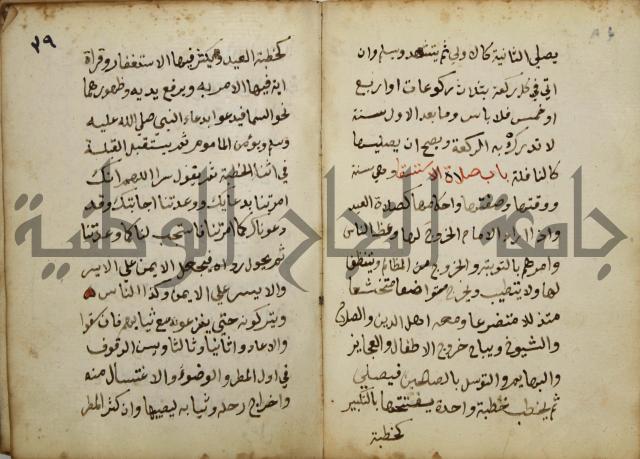 يصلي الثانية كالاولى ثم يتشهد ويسلم وان
اتى في كل ركعة بثلاث ركوعات او اربع
او خمس فلا باس وما بعد الاول سنة
لا تدرك به الركعة ويصح ان يصليها
كالنافلة باب صلاة الاستسقا وهي سنة
ووقتها وصفتها واحكامها كصلاة العيد
واذا اراد الامام الخروج لها وعظ الناس
وامرهم بالتوبة والخروج من المظالم ويتنظف
لها ولا يتطيب ويخرج متواضعا متخشعا
متذللا متضرعا ومعه اهل الدين والصلاح
والشيوخ ويباح خروج الاطفال والعجايز
والبهايم والتوسل بالصالحين فيصلي
ثم يخطب خطبة واحدة يفتتحها بالتكبير
كخطبة
٣٩
كخطبة العيد ويكثر فيها الاستغفار وقراة
اية فيها الامر به ويرفع يديه وظهورهما
نحو السما فيدعوا بدعاء النبي صلى الله عليه
وسلم ويؤمن الماموم ثم يستقبل القبلة
في اثنا الخطبة فيقول سرا اللهم انك
امرتنا بدعايك ووعدتنا اجابتك وقد
دعوناك كما امرتنا فاستجب لنا كما وعدتنا
ثم يحول رداه فيجعل الايمن على الايسر
والايسر على الايمن وكذا الناس
ويتركونه حتى ينزعوه مع ثيابهم فان سقوا
والا عادوا ثانيا وثالثا ويسن الوقوف
في اول المطر والوضوء والاغتسال منه
واخراج رحله وثيابه ليصيبها وان كثر المطر
جامعة النجاح الوطنية